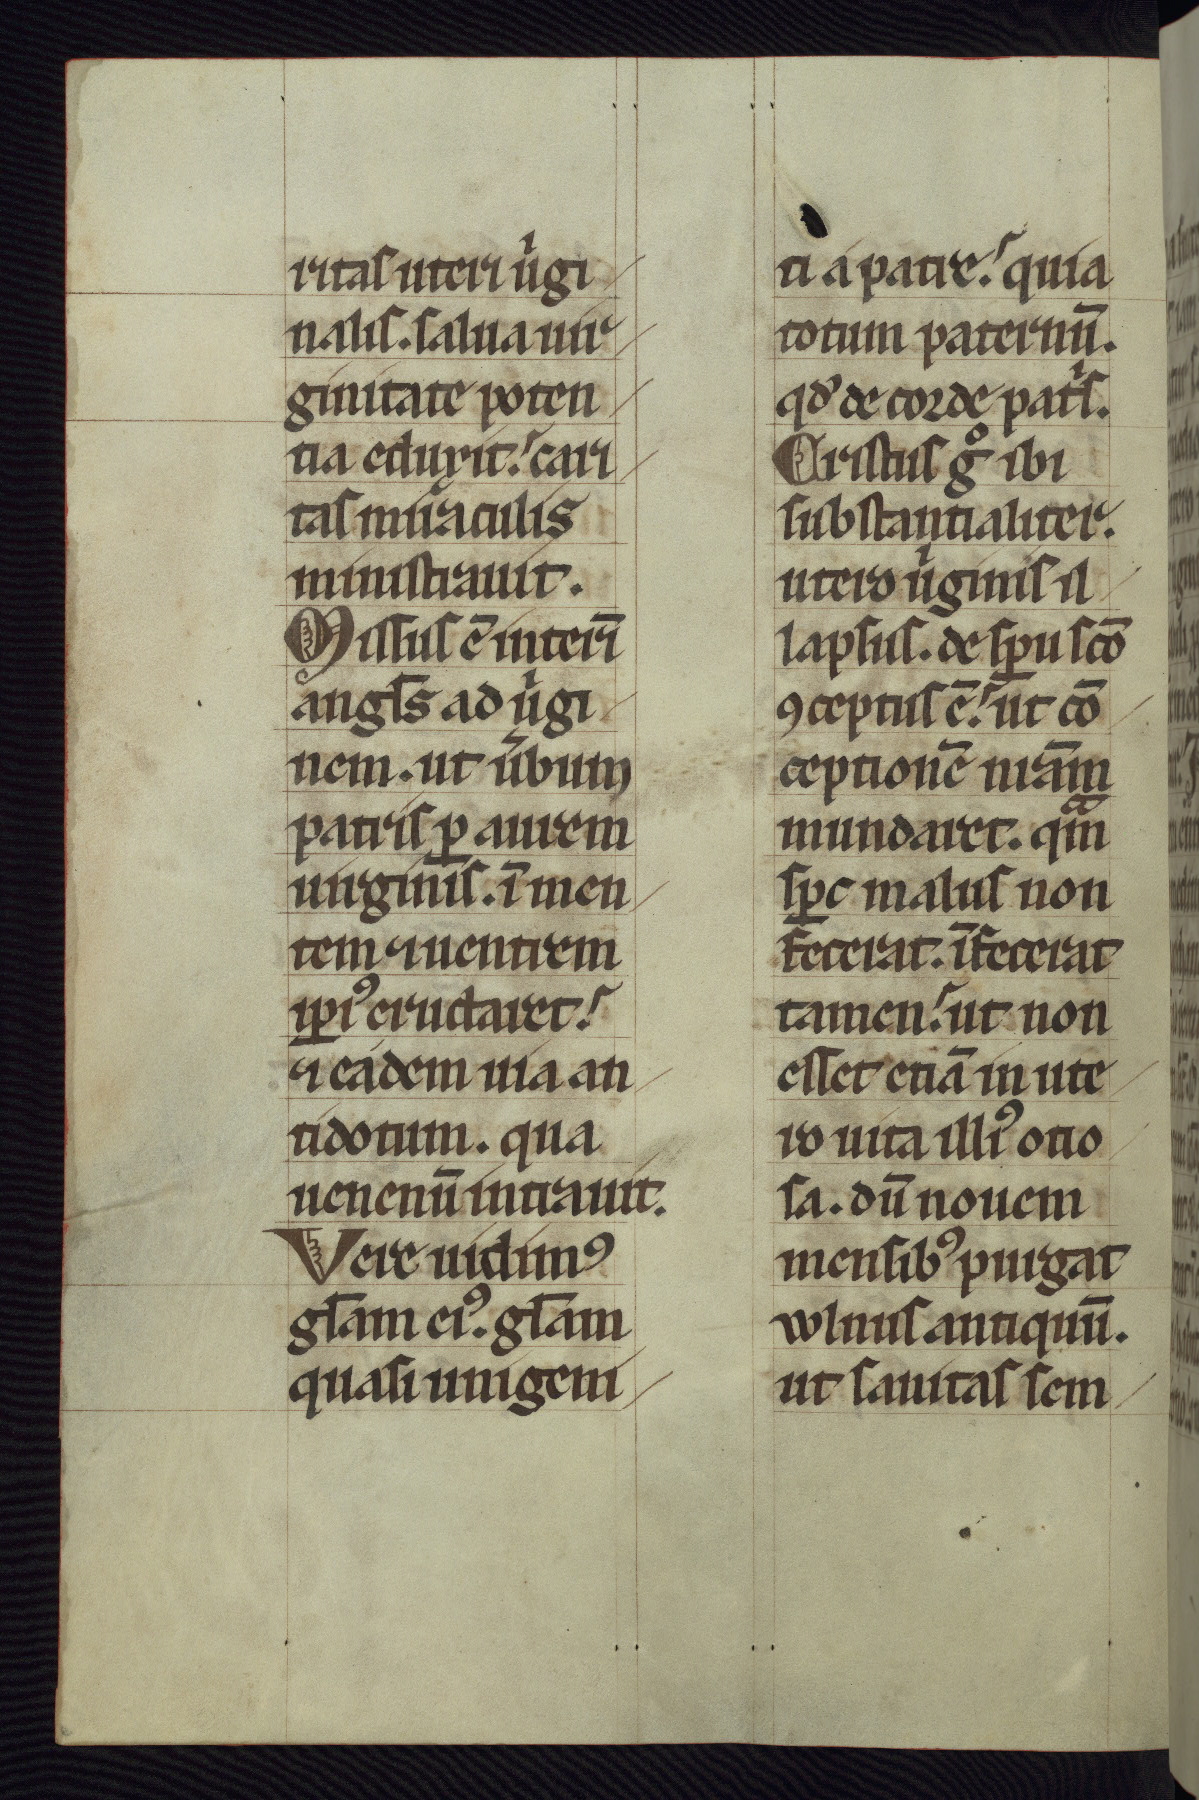 ritas uteri uͥgi
nalis. salua uir
ginitate poten
tia eduxit. cari
tas miraculis
ministrauit.
Missus ē interī
angl̄s ad uͥgi
nem. ut u̓bum
patris ꝑ aurem
uirginis. ī men
tem ⁊ uentrem
ip̄iꝰ eructaret.
⁊ eadem uia an
tidotum. qua
uenenū intrauit.
Vere uidimꝰ
gl̄am eiꝰ. gl̄am
quasi unigeni
ti a patre. quia
totum paternū.
qd̓ de corde patͥs.
Cristus gͦ ibi
substantialiter.
utero uͥginis il
lapsus. de sp̄u scō
ꝯceptus ē. ut cō
ceptionē nr̄am
mundaret. qm̄
sp̄c malus non
fecerat. īfecerat
tamen. ut non
esset etiā in ute
ro uita illiꝰ otio
sa. dū nouem
mensibꝰ purgat
wlnus antiquū.
ut sanitas sem